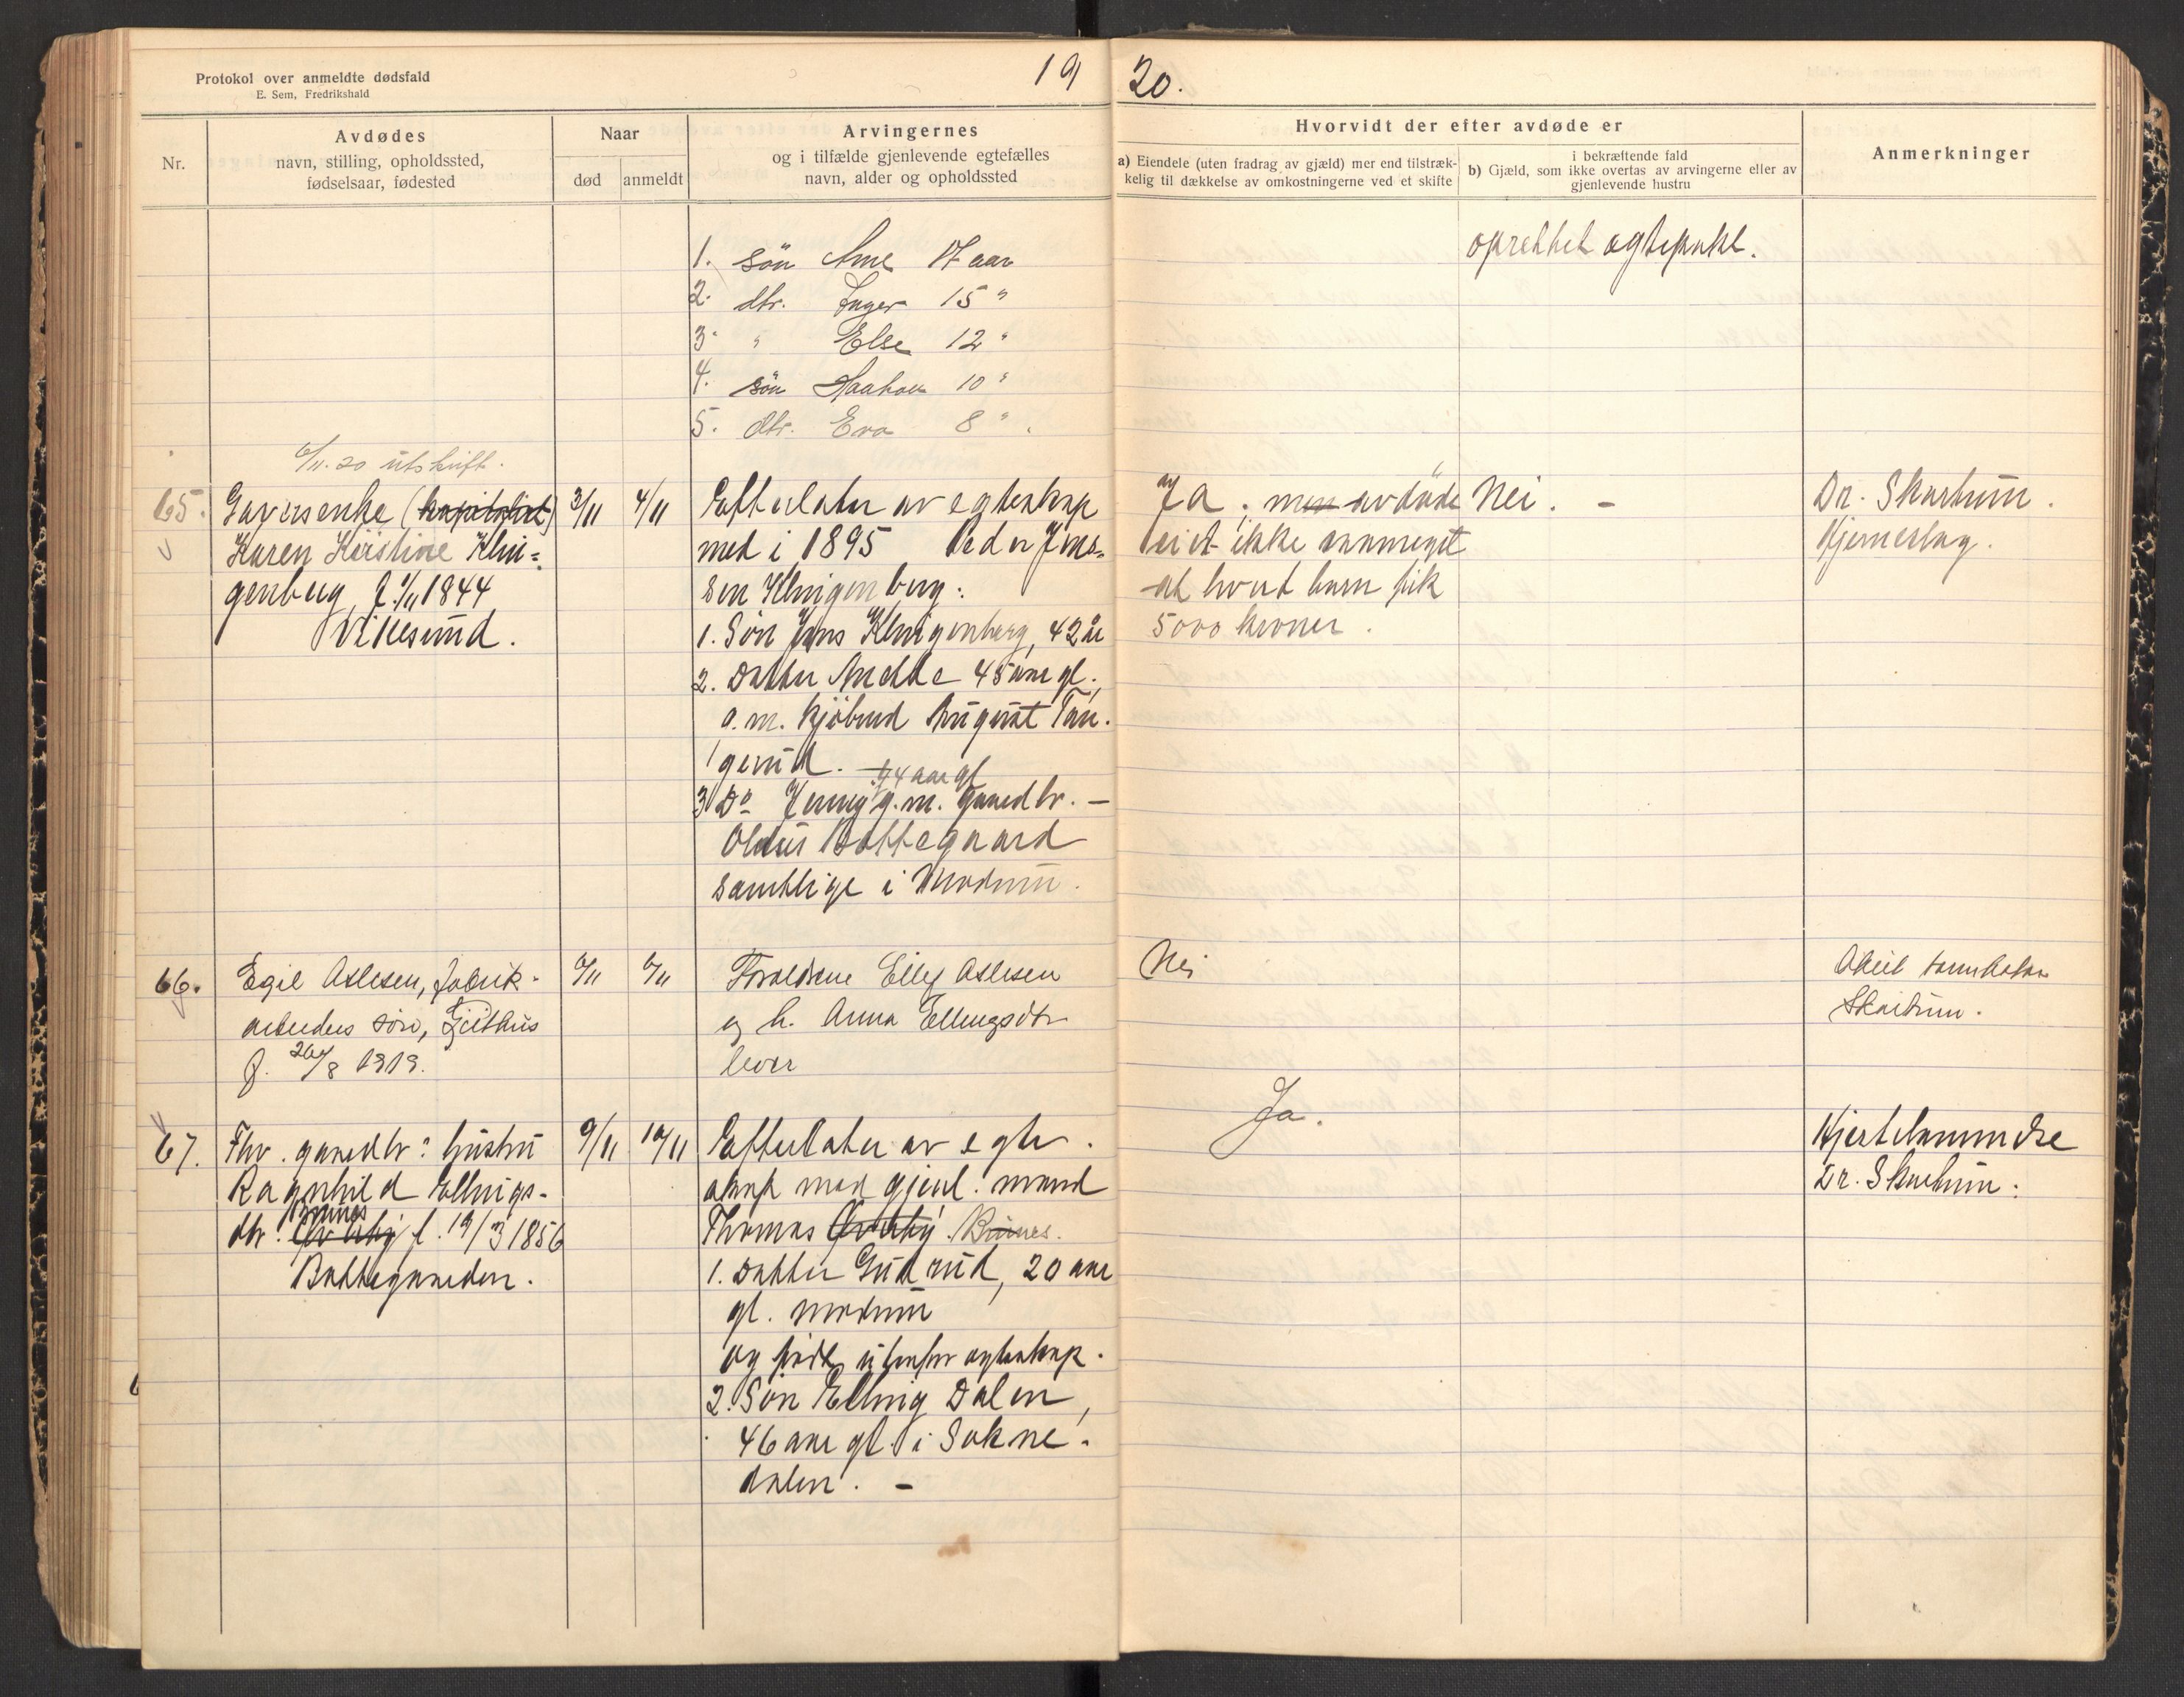 Protokol over anmeldte dødsfald
E. Sem, Fredrikshald
19
20.
Nr.
Avdødes
navn, stilling, opholdssted,
fødselsaar, fødested
Naar
død
anmeldt
Arvingernes
og i tilfælde gjenlevende egtefælles
navn, alder og opholdssted
Hvorvidt der efter avdøde er
a) Eiendele (uten fradrag av gjæld) mer end tilstræk-
kelig til dækkelse av omkostningerne ved et skifte
i bekræftende fald
b) Gjæld, som ikke overtas av arvingerne eller av
gjenlevende hustru
Anmerkninger
1. søn Arne 17 aar
2. dtr. Inger 15 "
3. " Else 12 "
4. søn Haakon 10 "
5. dtr. Eva 8 " .
oprettet egtepakt.
6/11. 20 utskrift.
65.
Garverenke (kapitalist)
Karen Kirstine Klin=
genberg, f. 1/11 1844
Vikesund.
3/11
4/11
Efterlater av egteskap
med i 1895 Peder Jens=
sen Klingenberg:
1. Søn Jens Klingenberg, 42 år
2. Datter Anette 45 aar gl.,
g. m. kjøbmd August Tan.
gerud. -
44 aar gl
3 Do Jenny g.m. gaardbr. -
Oluus Battegaard
samtlige i Modum.
Ja, men avdøde
eiet ikke saameget
at hvert barn fik
5000 kroner.
Nei. -
Dr. Skartum.
Hjerneslag.
66.
Egil Aslesen, fabrik-
arbeiders søn, Geithus
f. 26/8 1919.
6/11
6/11
Forældrene Ellef Aslesen
og h. Anna Ellingsdtr
lever
Nei
Skartum.
67.
Fhv. gaardbr: hustru
Ragnhild Ellings-
dtr. Brunes f. 19/3 1856
Battegaarden.
9/11
10/11
Efterlater av egte-
skap med gjenl. mand
Thomas Brunes.
1. Datter Gudrud, 20 aar
gl. Modum
og født utenfor egteskap.
2. Søn Elling Dalen,
46 aar gl. i Sokne-
dalen. -
Ja.
Hjertelammelse
Dr. Skartum.